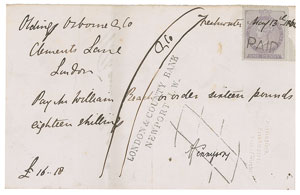 Oldings Osborne & Co
Freshwater May 13th
Clements Lane
London
& Co
PAID
Pay Mr William or order sixteen pounds
eighteen shillings
LONDON & COUNTY BANK
NEWPORT
£ 16-18
Tennyson